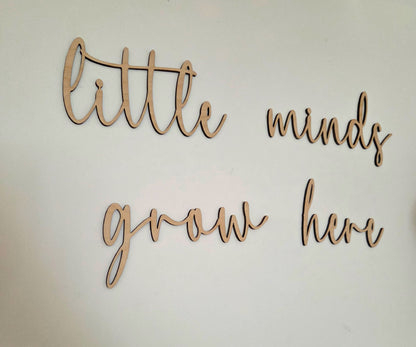 little minds
grow here